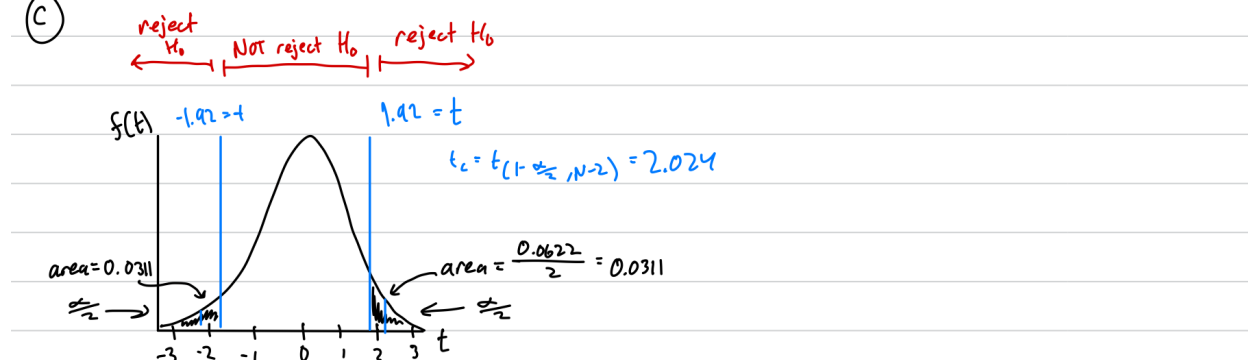 C
reject H₀
NOT reject H₀
reject H₀
f(t)
-1.92 = t
1.92 = t
t_c = t_(1-α/2, N-2) = 2.024
area = 0.0311
area = 0.0622/2 = 0.0311
α/2
α/2
-3 -2 -1 0 1 2 3 t